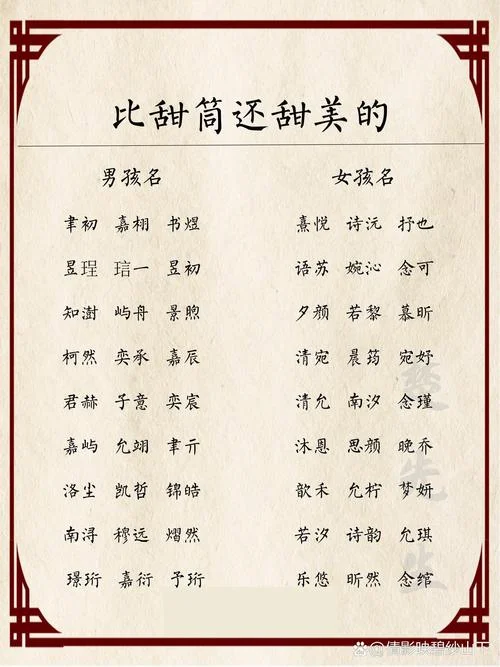 比甜筒还甜美的
男孩名
聿初 嘉栩 书煜
昱珵 琂一 昱初
知澍 屿舟 景煦
柯然 奕承 嘉辰
君赫 子意 奕宸
嘉屿 允翊 聿亓
洛尘 凯哲 锦皓
南浔 穆远 熠然
璟珩 嘉衍 予珩
女孩名
熹悦 诗沅 抒也
语苏 婉沁 念可
夕颜 若黎 慕昕
清宛 晨筠 宛妤
清允 南汐 念瑾
沐恩 思颜 晚乔
歆禾 允柠 梦妍
若汐 诗韵 允琪
乐悠 昕然 念绾
楚先生
倩影映碧纱山下